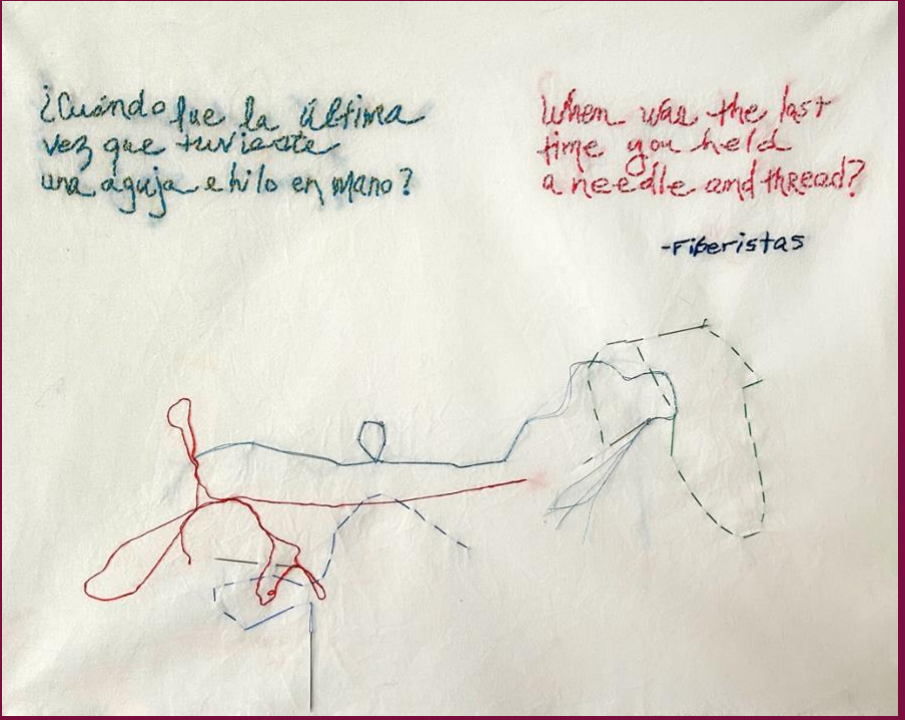 ¿Cuándo fue la última
vez que tuvieste
una aguja e hilo en mano?
When was the last
time you held
a needle and thread?
-Fiberistas